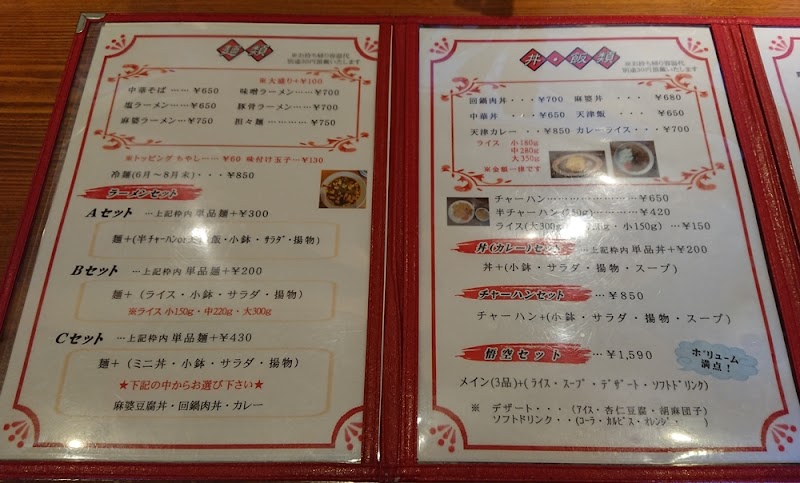 麺類
※お持ち帰り容器代
別途30円頂戴いたします
※大盛り+¥100
中華そば……¥650 味噌ラーメン…¥700
塩ラーメン…¥650 豚骨ラーメン…¥700
麻婆ラーメン…¥750 担々麺…………¥750
※トッピング もやし……¥60 味付け玉子…¥130
冷麺(6月～8月末)・・・¥850
ラーメンセット
Aセット …上記枠内 単品麺+¥300
麺+(半チャーハンor 飯・小鉢・サラダ・揚物)
Bセット …上記枠内 単品麺+¥200
麺+(ライス・小鉢・サラダ・揚物)
※ライス 小150g・中220g・大300g
Cセット …上記枠内 単品麺+¥430
麺+(ミニ丼・小鉢・サラダ・揚物)
★下記の中からお選び下さい★
麻婆豆腐丼・回鍋肉丼・カレー
丼・飯類
※お持ち帰り容器代
別途30円頂戴いたします
回鍋肉丼・・・¥700 麻婆丼 ・・・ ¥680
中華丼 ・・・¥650 天津飯 ・・・ ¥650
天津カレー・・¥850 カレーライス・・・¥700
ライス 小180g
中280g
大350g
※金額一律です
チャーハン………………………¥650
半チャーハン(250g)…………¥420
ライス(大300g ・小150g) …¥150
丼(カレー)セット …上記枠内 単品丼+¥200
丼+(小鉢・サラダ・揚物・スープ)
チャーハンセット …¥850
チャーハン+(小鉢・サラダ・揚物・スープ)
悟空セット …¥1,590
ボリューム
満点!
メイン(3品)+(ライス・スープ・デザート・ソフトドリンク)
※ デザート・・・(アイス・杏仁豆腐・胡麻団子)
ソフトドリンク・・(コーラ・カルピス・オレンジ・ )